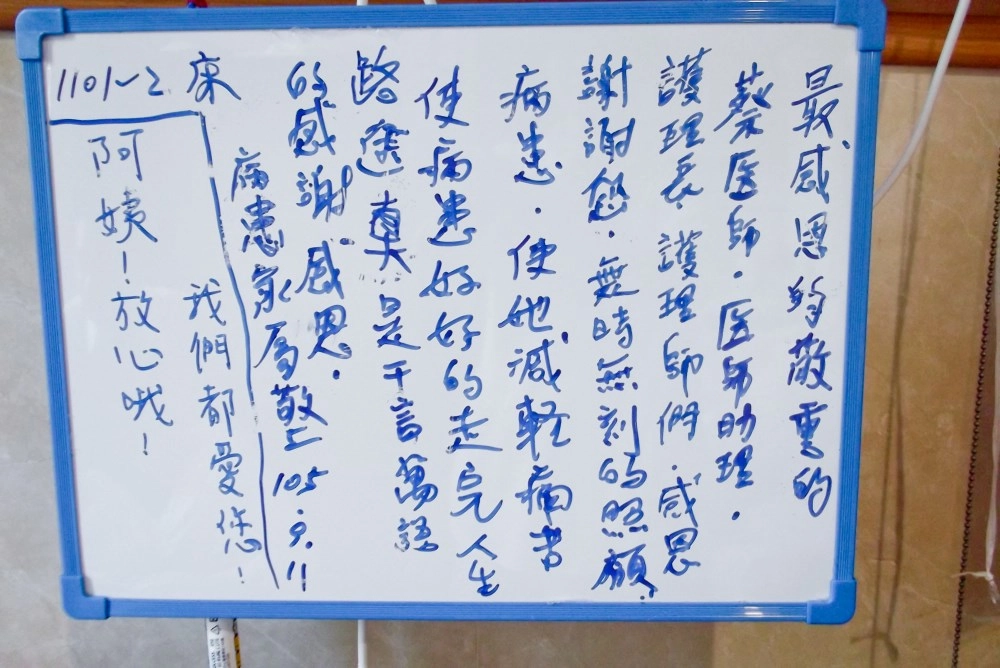 最感恩的敬重的
蔡医師．医師助理．
護理長．護理師們．感恩
謝謝您．無時無刻的照顧．
病患．使她減輕痛苦
使病患好好的走完人生
路途真是千言萬語
的感謝感恩．
病患家属敬上 105.9.11
1101~2 康
我們都愛您！
阿姨！放心哦！